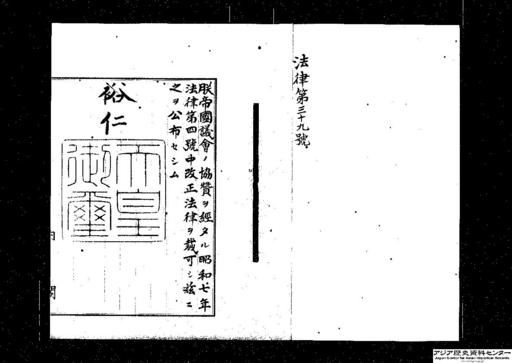 法律第三十九號
朕帝國議會ノ協贊ヲ經タル昭和七年
法律第四號中改正法律ヲ裁可シ茲ニ
之ヲ公布セシム
裕仁
天皇
御璽
内閣
アジア歴史資料センター
Japan Center for Asian Historical Records